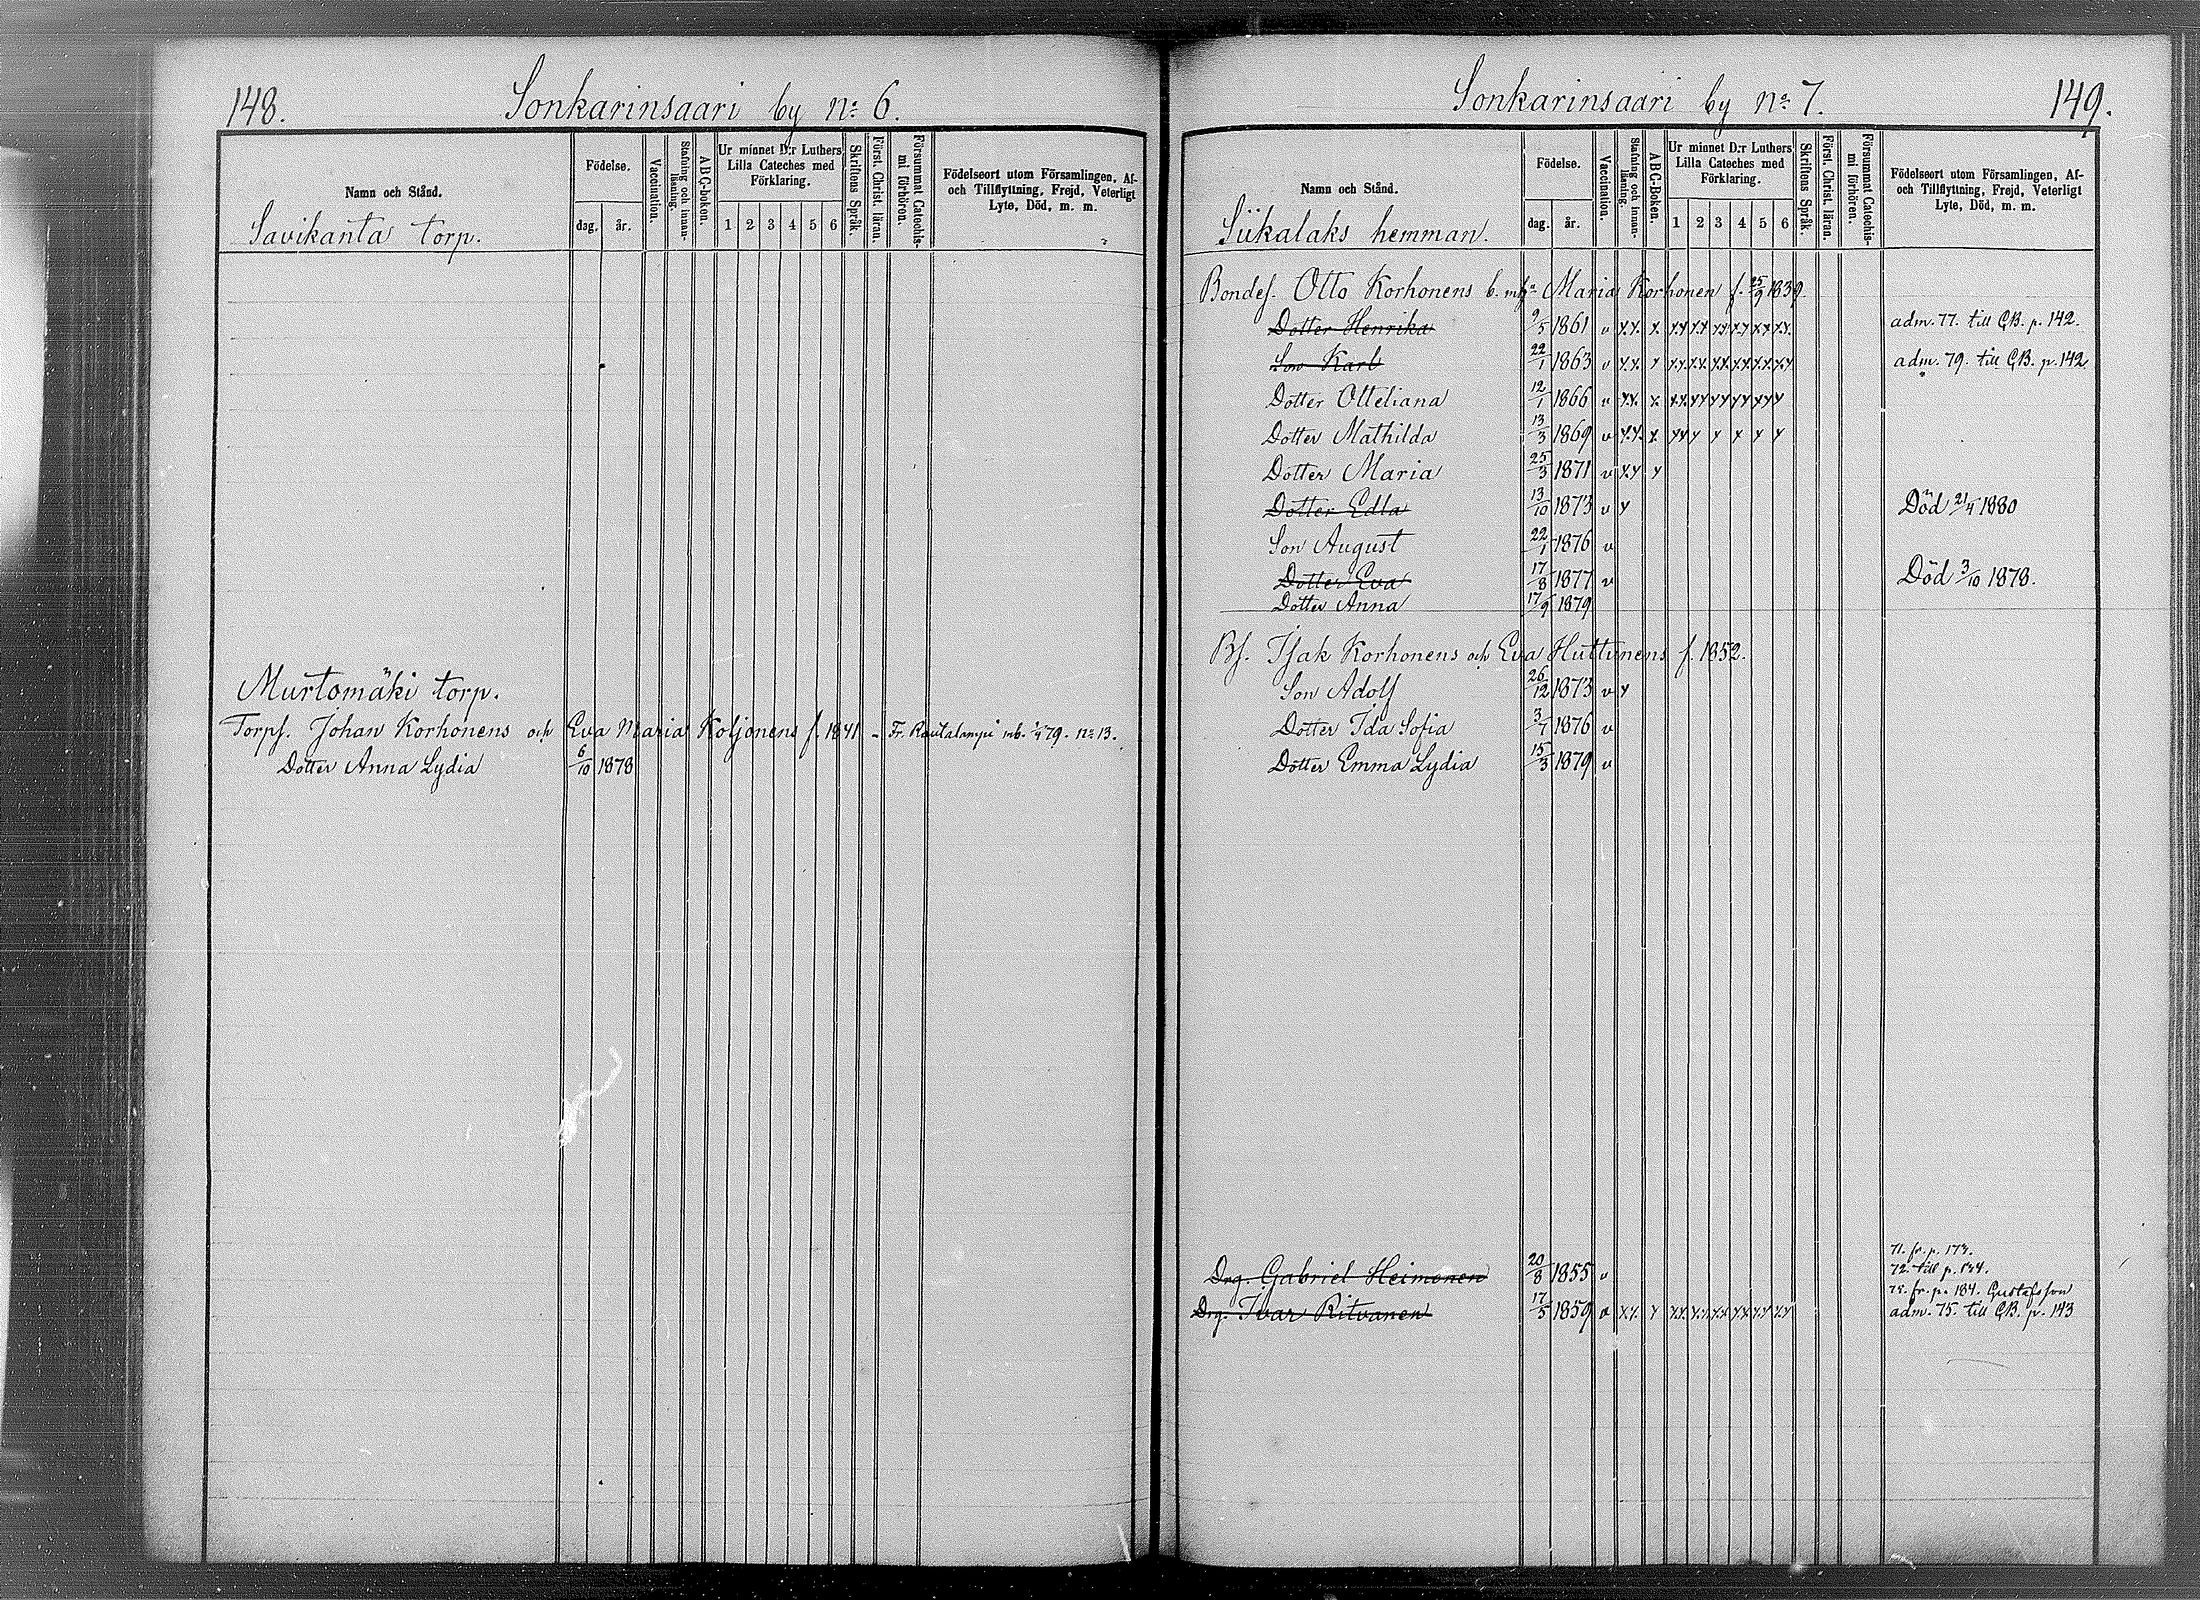 148.
Sonkarinsaari by nº 6.
Namn och Stånd.
Födelse.
dag.
år.
Vaccination.
Stafning och innan-
läsning.
ABC-boken.
Ur minnet D:r Luthers
Lilla Cateches med
Förklaring.
1 2 3 4 5 6
Skriftens Språk.
Först. Christ. läran.
Försummat Catechis-
mi förhören.
Födelseort utom Församlingen, Af-
och Tillflyttning, Frejd, Veterligt
Lyte, Död, m. m.
Savikanta torp.
Murtomäki torp.
Torpf. Johan Korhonens och Eva Maria Koljonens f. 1841 - Fr. Rautalampi mb. 1/4 79. nº 13.
Dotter Anna Lydia 6/10 1878
Sonkarinsaari by nº 7.
149.
Namn och Stånd.
Födelse.
dag.
år.
Vaccination.
Stafning och innan-
läsning.
ABC-Boken.
Ur minnet D:r Luthers
Lilla Cateches med
Förklaring.
1 2 3 4 5 6
Skriftens Språk.
Först. Christ. läran.
Försummat Catechis-
mi förhören.
Födelseort utom Församlingen, Af-
och Tillflyttning, Frejd, Veterligt
Lyte, Död, m. m.
Siikalaks hemman.
Bondes. Otto Korhonens b. m. Maria Korhonen f. 25/9 1839.
Dotter Henrika 9/5 1861 v x.x. x. xx xx xx xx xx xx. adm. 77. till CB. p. 142.
Son Karl 22/1 1863 v x.x. x x.x. x.x. x.x. x.x. x.x. x.x adm. 79. till CB. p. 142
Dotter Otteliana 12/1 1866 v x.x. x. xx xx xx xx xx x
Dotter Mathilda 13/3 1869 v x.x. x. xx x x x x x
Dotter Maria 25/3 1871 v xx x
Dotter Edla 13/10 1873 v x Död 21/4 1880
Son August 22/1 1876 v
Dotter Eva 17/8 1877 v Död 3/10 1878.
Dotter Anna 17/9 1879
Bf. Isak Korhonens och Eva Huttunens f. 1852.
Son Adolf 26/12 1873 v x
Dotter Ida Sofia 3/7 1876 v
Dotter Emma Lydia 15/3 1879 v
71. fr. p. 173.
Drg. Gabriel Heimonen 20/8 1855 v 72. till p. 134.
75. fr. p. 184. Gustafsson
Drg. Ivar Ritvanen 17/5 1859 v x.x. x x.x. x.x. x.x. x.x. x.x. x.x adm. 75. till CB. p. 143